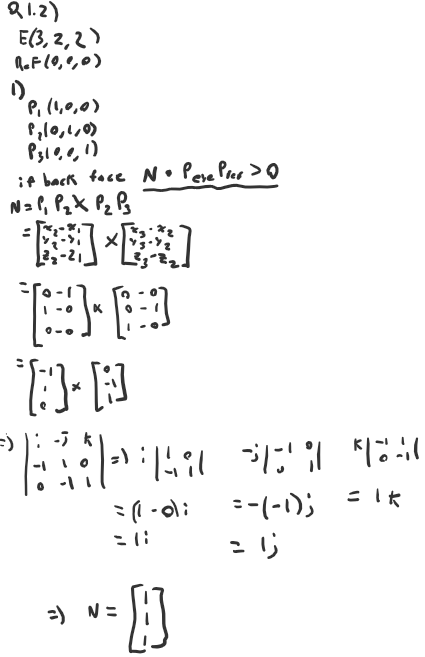 Q1.2)
E(3, 2, 2)
Ref(0,0,0)
1)
P₁ (1,0,0)
P₂(0,1,0)
P₃(0,0,1)
if back face N • P_eye P_ref > 0
N = P₁ P₂ X P₂ P₃
= [x₂-x₁ y₂-y₁ z₂-z₁] × [x₃-x₂ y₃-y₂ z₃-z₂]
= [0-1 1-0 0-0] × [0-0 0-1 1-0]
= [-1 1 0] × [0 -1 1]
=) |i -j k -1 1 0 0 -1 1| =) i|1 0 -1 1| -j|-1 0 0 1| k|-1 1 0 -1|
= (1-0)i = -(-1)j = 1k
= 1i = 1j
=) N = [1 1 1]